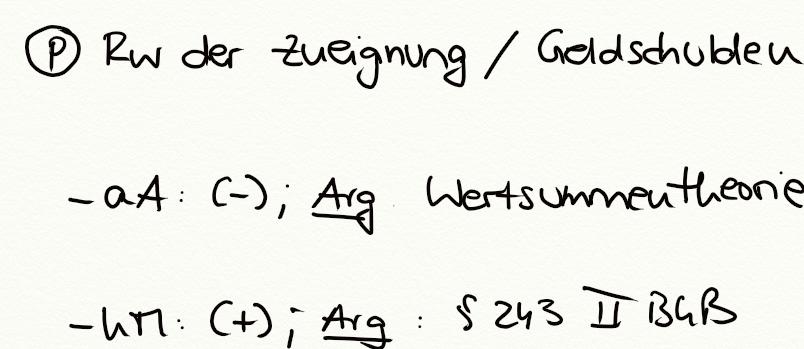 Ⓟ Rw der Zueignung / Geldschulden
- aA: (-); Arg. Wertsummentheorie
- hM: (+); Arg: § 243 II BGB